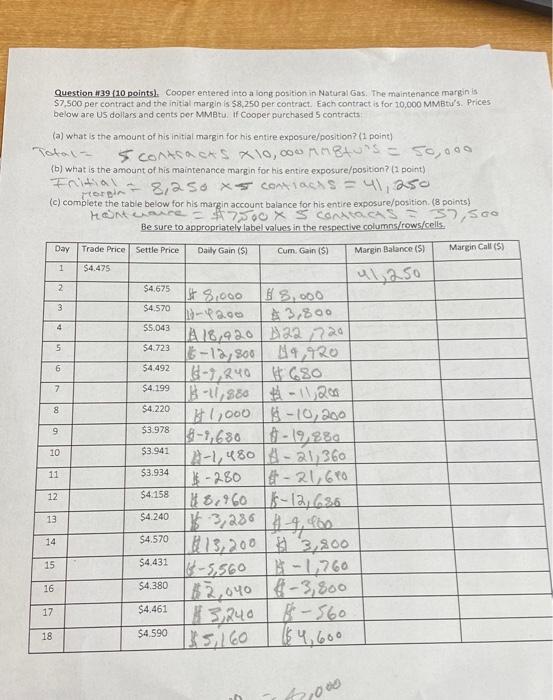 Question #39 (10 points). Cooper entered into a long position in Natural Gas. The maintenance margin is
$7,500 per contract and the initial margin is $8,250 per contract. Each contract is for 10,000 MMBtu's. Prices
below are US dollars and cents per MMBtu. If Cooper purchased 5 contracts:
(a) what is the amount of his initial margin for his entire exposure/position? (1 point)
Total = 5 contracts x10,000 MMBtu's = 50,000
(b) what is the amount of his maintenance margin for his entire exposure/position? (1 point)
Initial margin = 8,250 x 5 contracts = 41,250
(c) complete the table below for his margin account balance for his entire exposure/position. (8 points)
= $7500 x 5 contracts = 37,500
Be sure to appropriately label values in the respective columns/rows/cells.
Day Trade Price Settle Price Daily Gain ($) Cum. Gain ($) Margin Balance ($) Margin Call ($)
1 $4.475 41,250
2 $4.675 $ 8,000 $ 8,000
3 $4.570 $-4200 $ 3,800
4 $5.043 $ 18,920 $22,720
5 $4.723 $-12,800 $9,920
6 $4.492 $-9,240 $ 680
7 $4.199 $ - 11,200
8 $4.220 $ 1,000 $ -10,200
9 $3.978 $-9,680 $-19,880
10 $3.941 $-1,480 $ -21,360
11 $3.934 $ -280
12 $4.158 $ 8,960
13 $4.240
14 $4.570 $13,200 $ 3,800
15 $4.431 $-5,560 $ -1,760
16 $4.380 $2,040 $-3,800
17 $4.461 $ 3,240 $ -560
18 $4.590 $5,160 $4,600